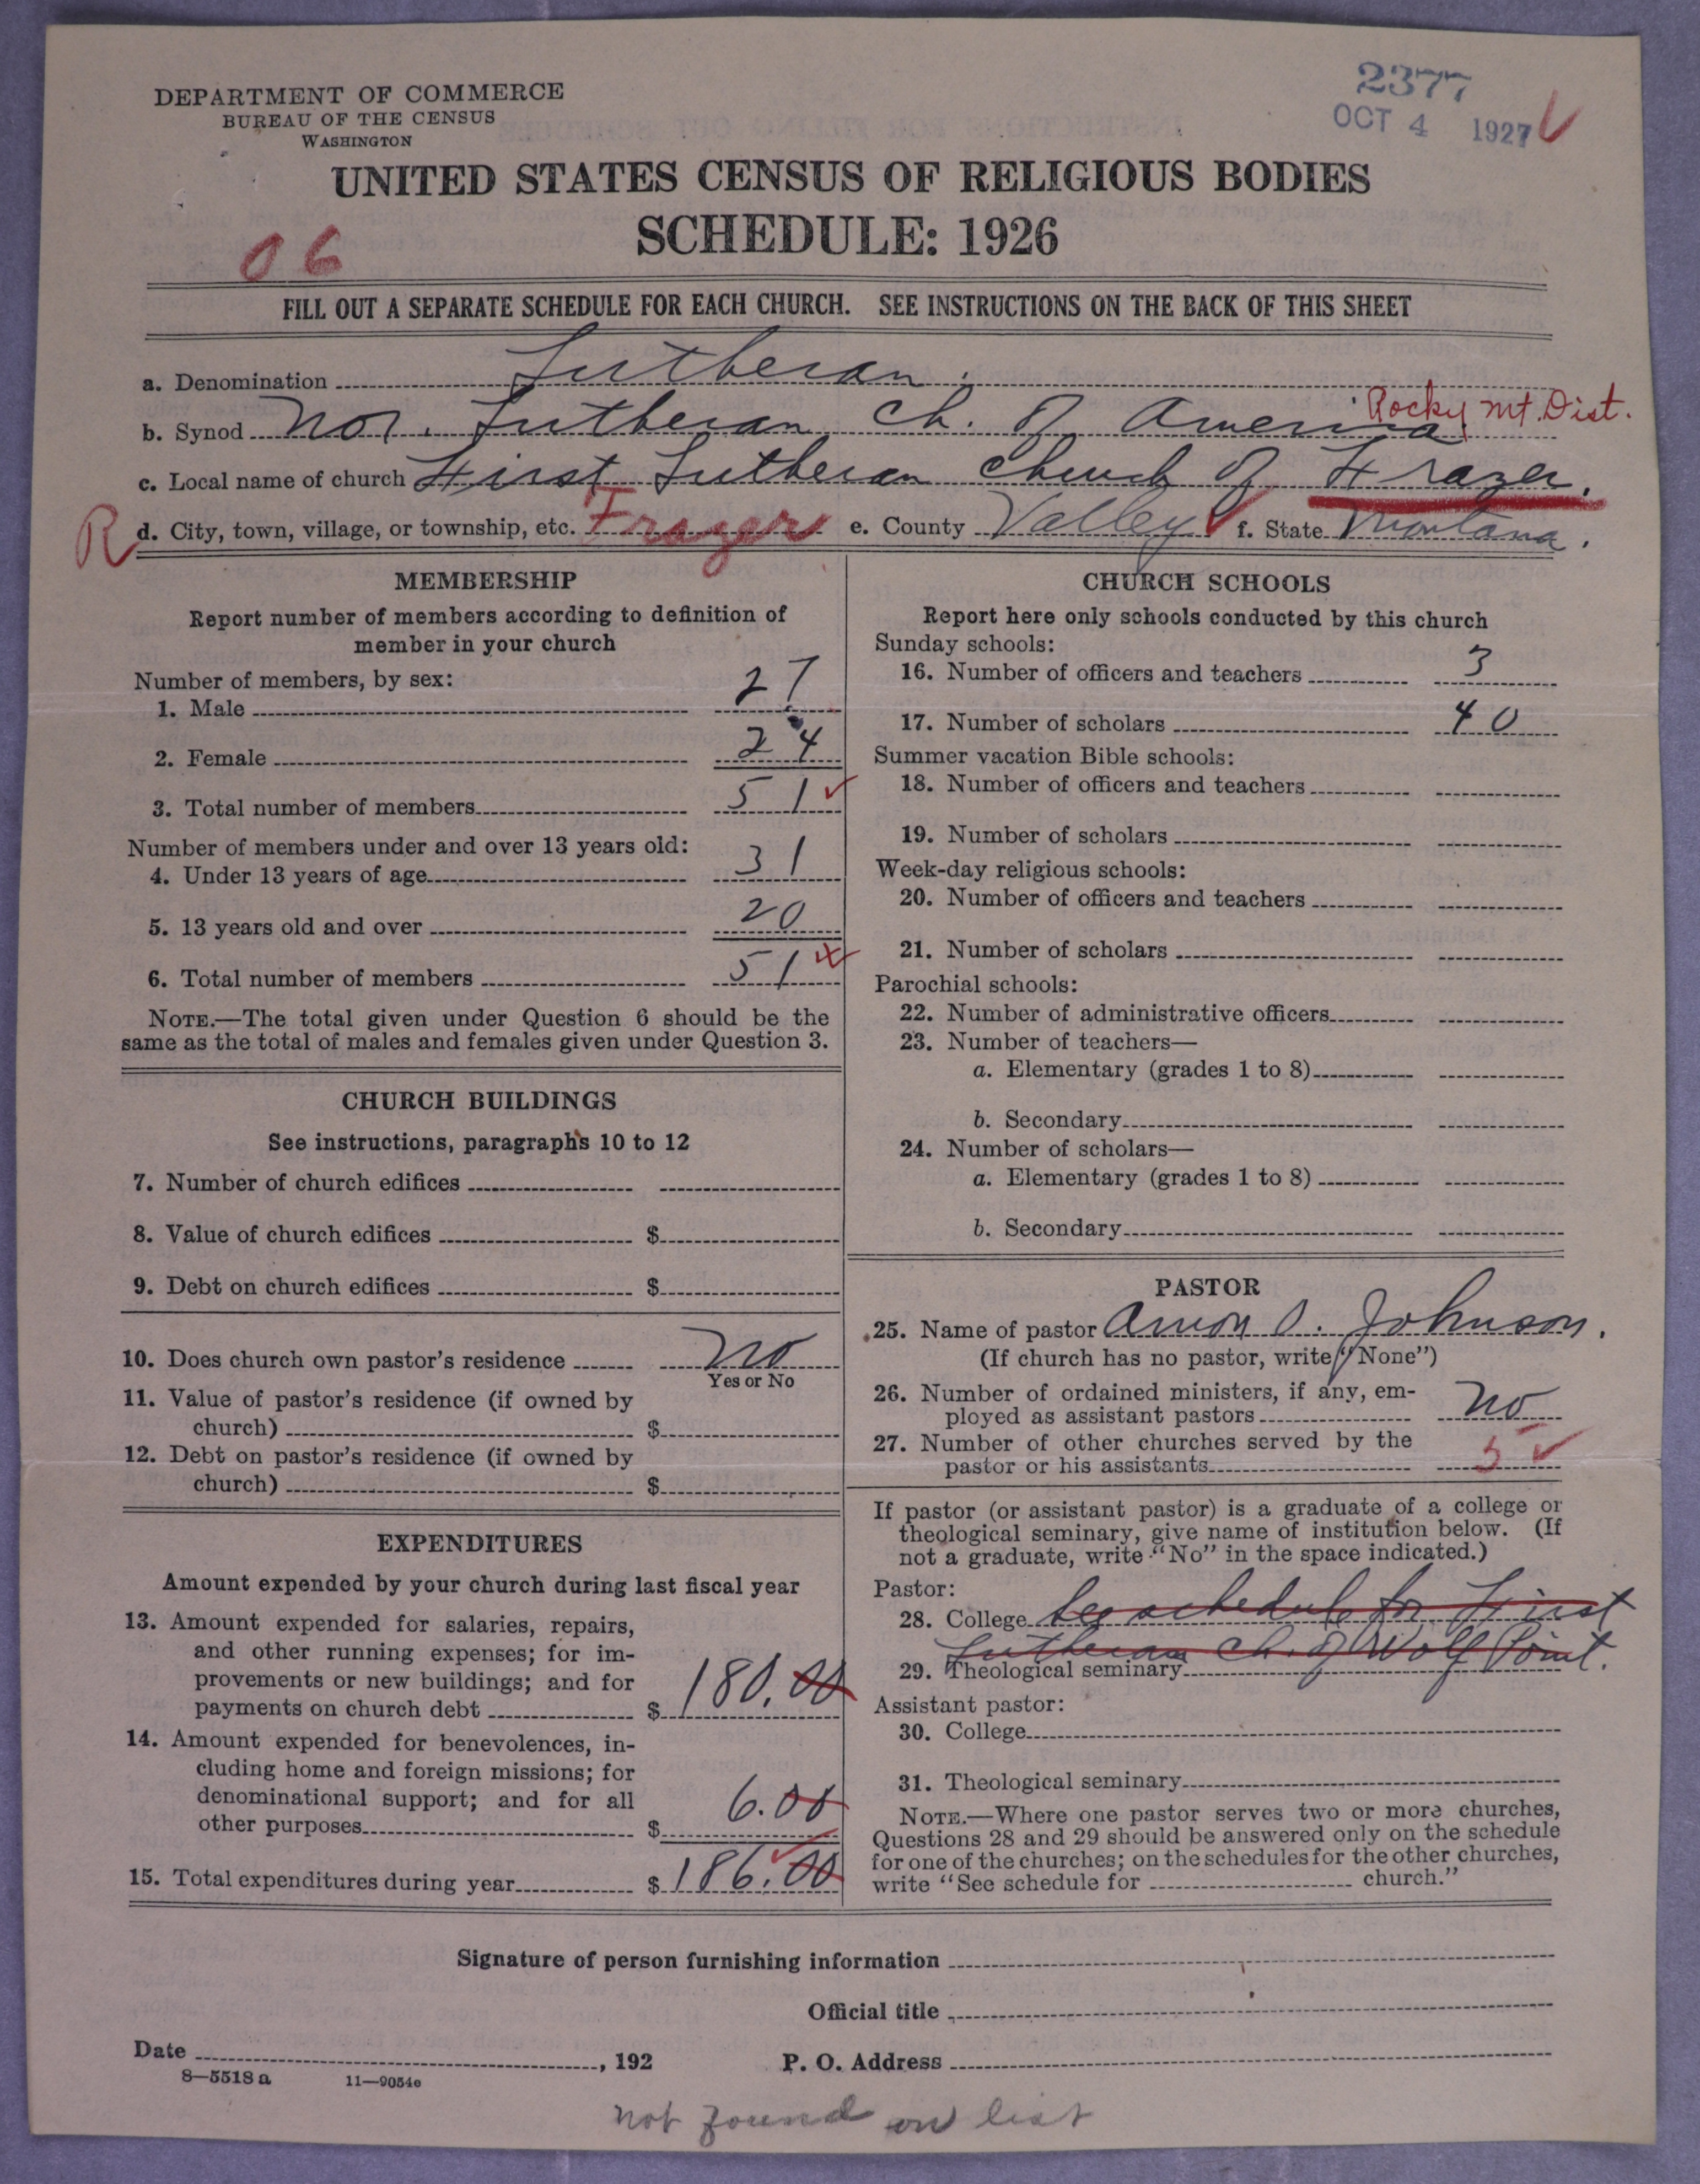 2377
OCT 4 1927
DEPARTMENT OF COMMERCE
BUREAU OF THE CENSUS
WASHINGTON
UNITED STATES CENSUS OF RELIGIOUS BODIES
SCHEDULE: 1926
06
FILL OUT A SEPARATE SCHEDULE FOR EACH CHURCH. SEE INSTRUCTIONS ON THE BACK OF THIS SHEET
a. Denomination Lutheran.
b. Synod Nor. Lutheran Ch. of America Rocky Mt. Dist.
c. Local name of church First Lutheran Church of Frazer.
R d. City, town, village, or township, etc. Frazer e. County Valley f. State Montana.
MEMBERSHIP
Report number of members according to definition of
member in your church
Number of members, by sex:
1. Male 27
2. Female 24
3. Total number of members 51
Number of members under and over 13 years old:
4. Under 13 years of age 31
5. 13 years old and over 20
6. Total number of members 51
NOTE.—The total given under Question 6 should be the
same as the total of males and females given under Question 3.
CHURCH BUILDINGS
See instructions, paragraphs 10 to 12
7. Number of church edifices
8. Value of church edifices $
9. Debt on church edifices $
10. Does church own pastor's residence No
Yes or No
11. Value of pastor's residence (if owned by
church) $
12. Debt on pastor's residence (if owned by
church) $
EXPENDITURES
Amount expended by your church during last fiscal year
13. Amount expended for salaries, repairs,
and other running expenses; for im-
provements or new buildings; and for
payments on church debt $ 180.00
14. Amount expended for benevolences, in-
cluding home and foreign missions; for
denominational support; and for all
other purposes $ 6.00
15. Total expenditures during year $ 186.00
CHURCH SCHOOLS
Report here only schools conducted by this church
Sunday schools:
16. Number of officers and teachers 3
17. Number of scholars 40
Summer vacation Bible schools:
18. Number of officers and teachers
19. Number of scholars
Week-day religious schools:
20. Number of officers and teachers
21. Number of scholars
Parochial schools:
22. Number of administrative officers
23. Number of teachers—
a. Elementary (grades 1 to 8)
b. Secondary
24. Number of scholars—
a. Elementary (grades 1 to 8)
b. Secondary
PASTOR
25. Name of pastor O. Johnson.
(If church has no pastor, write "None")
26. Number of ordained ministers, if any, em-
ployed as assistant pastors No
27. Number of other churches served by the
pastor or his assistants 5
If pastor (or assistant pastor) is a graduate of a college or
theological seminary, give name of institution below. (If
not a graduate, write "No" in the space indicated.)
Pastor:
28. College See schedule for First
Lutheran Ch. of Wolf Point.
29. Theological seminary
Assistant pastor:
30. College
31. Theological seminary
NOTE.—Where one pastor serves two or more churches,
Questions 28 and 29 should be answered only on the schedule
for one of the churches; on the schedules for the other churches,
write "See schedule for church."
Signature of person furnishing information
Official title
Date , 192
P. O. Address
8—5518 a 11—9054e
not found on list